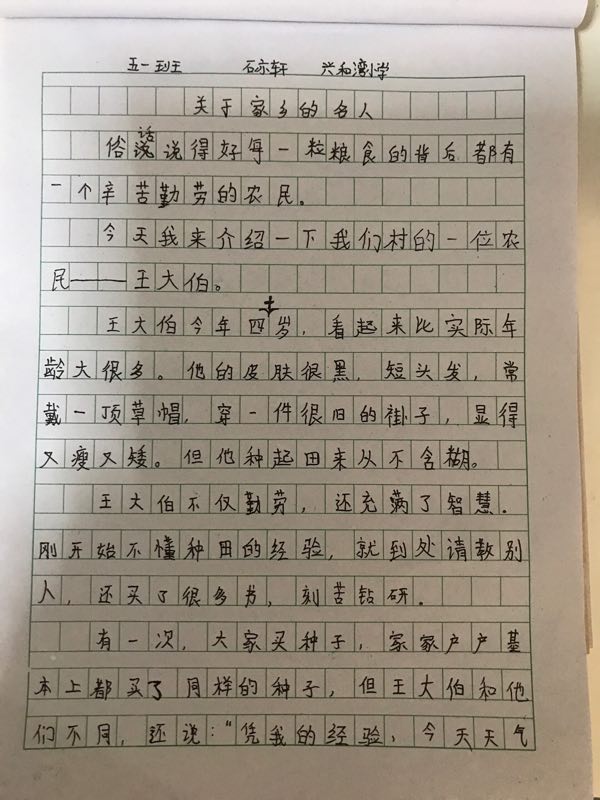 五一班 石亦轩 兴和湾小学
关于家乡的名人
俗话说说得好每一粒粮食的背后都有
一个辛苦勤劳的农民。
今天我来介绍一下我们村的一位农
民——王大伯。
王大伯今年四十岁，看起来比实际年
龄大很多。他的皮肤很黑，短头发，常
戴一顶草帽，穿一件很旧的褂子，显得
又瘦又矮。但他种起田来从不含糊。
王大伯不仅勤劳，还充满了智慧。
刚开始不懂种田的经验，就到处请教别
人，还买了很多书，刻苦钻研。
有一次，大家买种子，家家户户基
本上都买了同样的种子，但王大伯和他
们不同，还说：“凭我的经验，今天天气